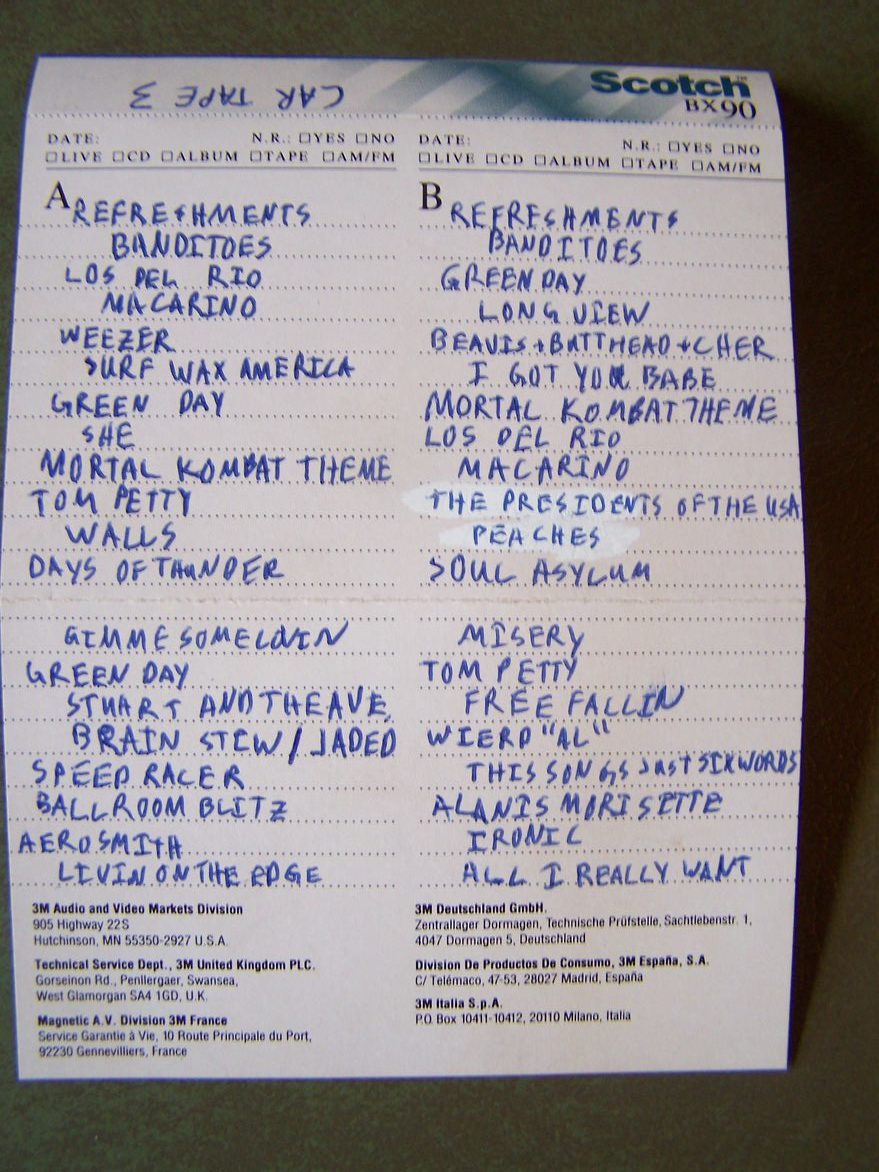 CAR TAPE 3
Scotch™
BX90
DATE:
N.R.: ☐YES ☐NO
☐LIVE ☐CD ☐ALBUM ☐TAPE ☐AM/FM
A
REFRESHMENTS
BANDITOES
LOS DEL RIO
MACARINO
WEEZER
SURF WAX AMERICA
GREEN DAY
SHE
MORTAL KOMBAT THEME
TOM PETTY
WALLS
DAYS OF THUNDER
GIMME SOME LOVIN
GREEN DAY
STUART AND THE AVE.
BRAIN STEW/JADED
SPEED RACER
BALLROOM BLITZ
AEROSMITH
LIVIN ON THE EDGE
3M Audio and Video Markets Division
905 Highway 22S
Hutchinson, MN 55350-2927 U.S.A.
Technical Service Dept., 3M United Kingdom PLC.
Gorseinon Rd., Penllergaer, Swansea,
West Glamorgan SA4 1GD, U.K.
Magnetic A.V. Division 3M France
Service Garantie à Vie, 10 Route Principale du Port,
92230 Gennevilliers, France
DATE:
N.R.: ☐YES ☐NO
☐LIVE ☐CD ☐ALBUM ☐TAPE ☐AM/FM
B
REFRESHMENTS
BANDITOES
GREEN DAY
LONG VIEW
BEAVIS + BUTTHEAD + CHER
I GOT YOU BABE
MORTAL KOMBAT THEME
LOS DEL RIO
MACARINO
THE PRESIDENTS OF THE USA
PEACHES
SOUL ASYLUM
MISERY
TOM PETTY
FREE FALLIN
WIERD "AL"
THIS SONGS JUST SIX WORDS
ALANIS MORISETTE
IRONIC
ALL I REALLY WANT
3M Deutschland GmbH.
Zentrallager Dormagen, Technische Prüfstelle, Sachtlebenstr. 1,
4047 Dormagen 5, Deutschland
Division De Productos De Consumo, 3M España, S.A.
C/ Telémaco, 47-53, 28027 Madrid, España
3M Italia S.p.A.
P.O. Box 10411-10412, 20110 Milano, Italia